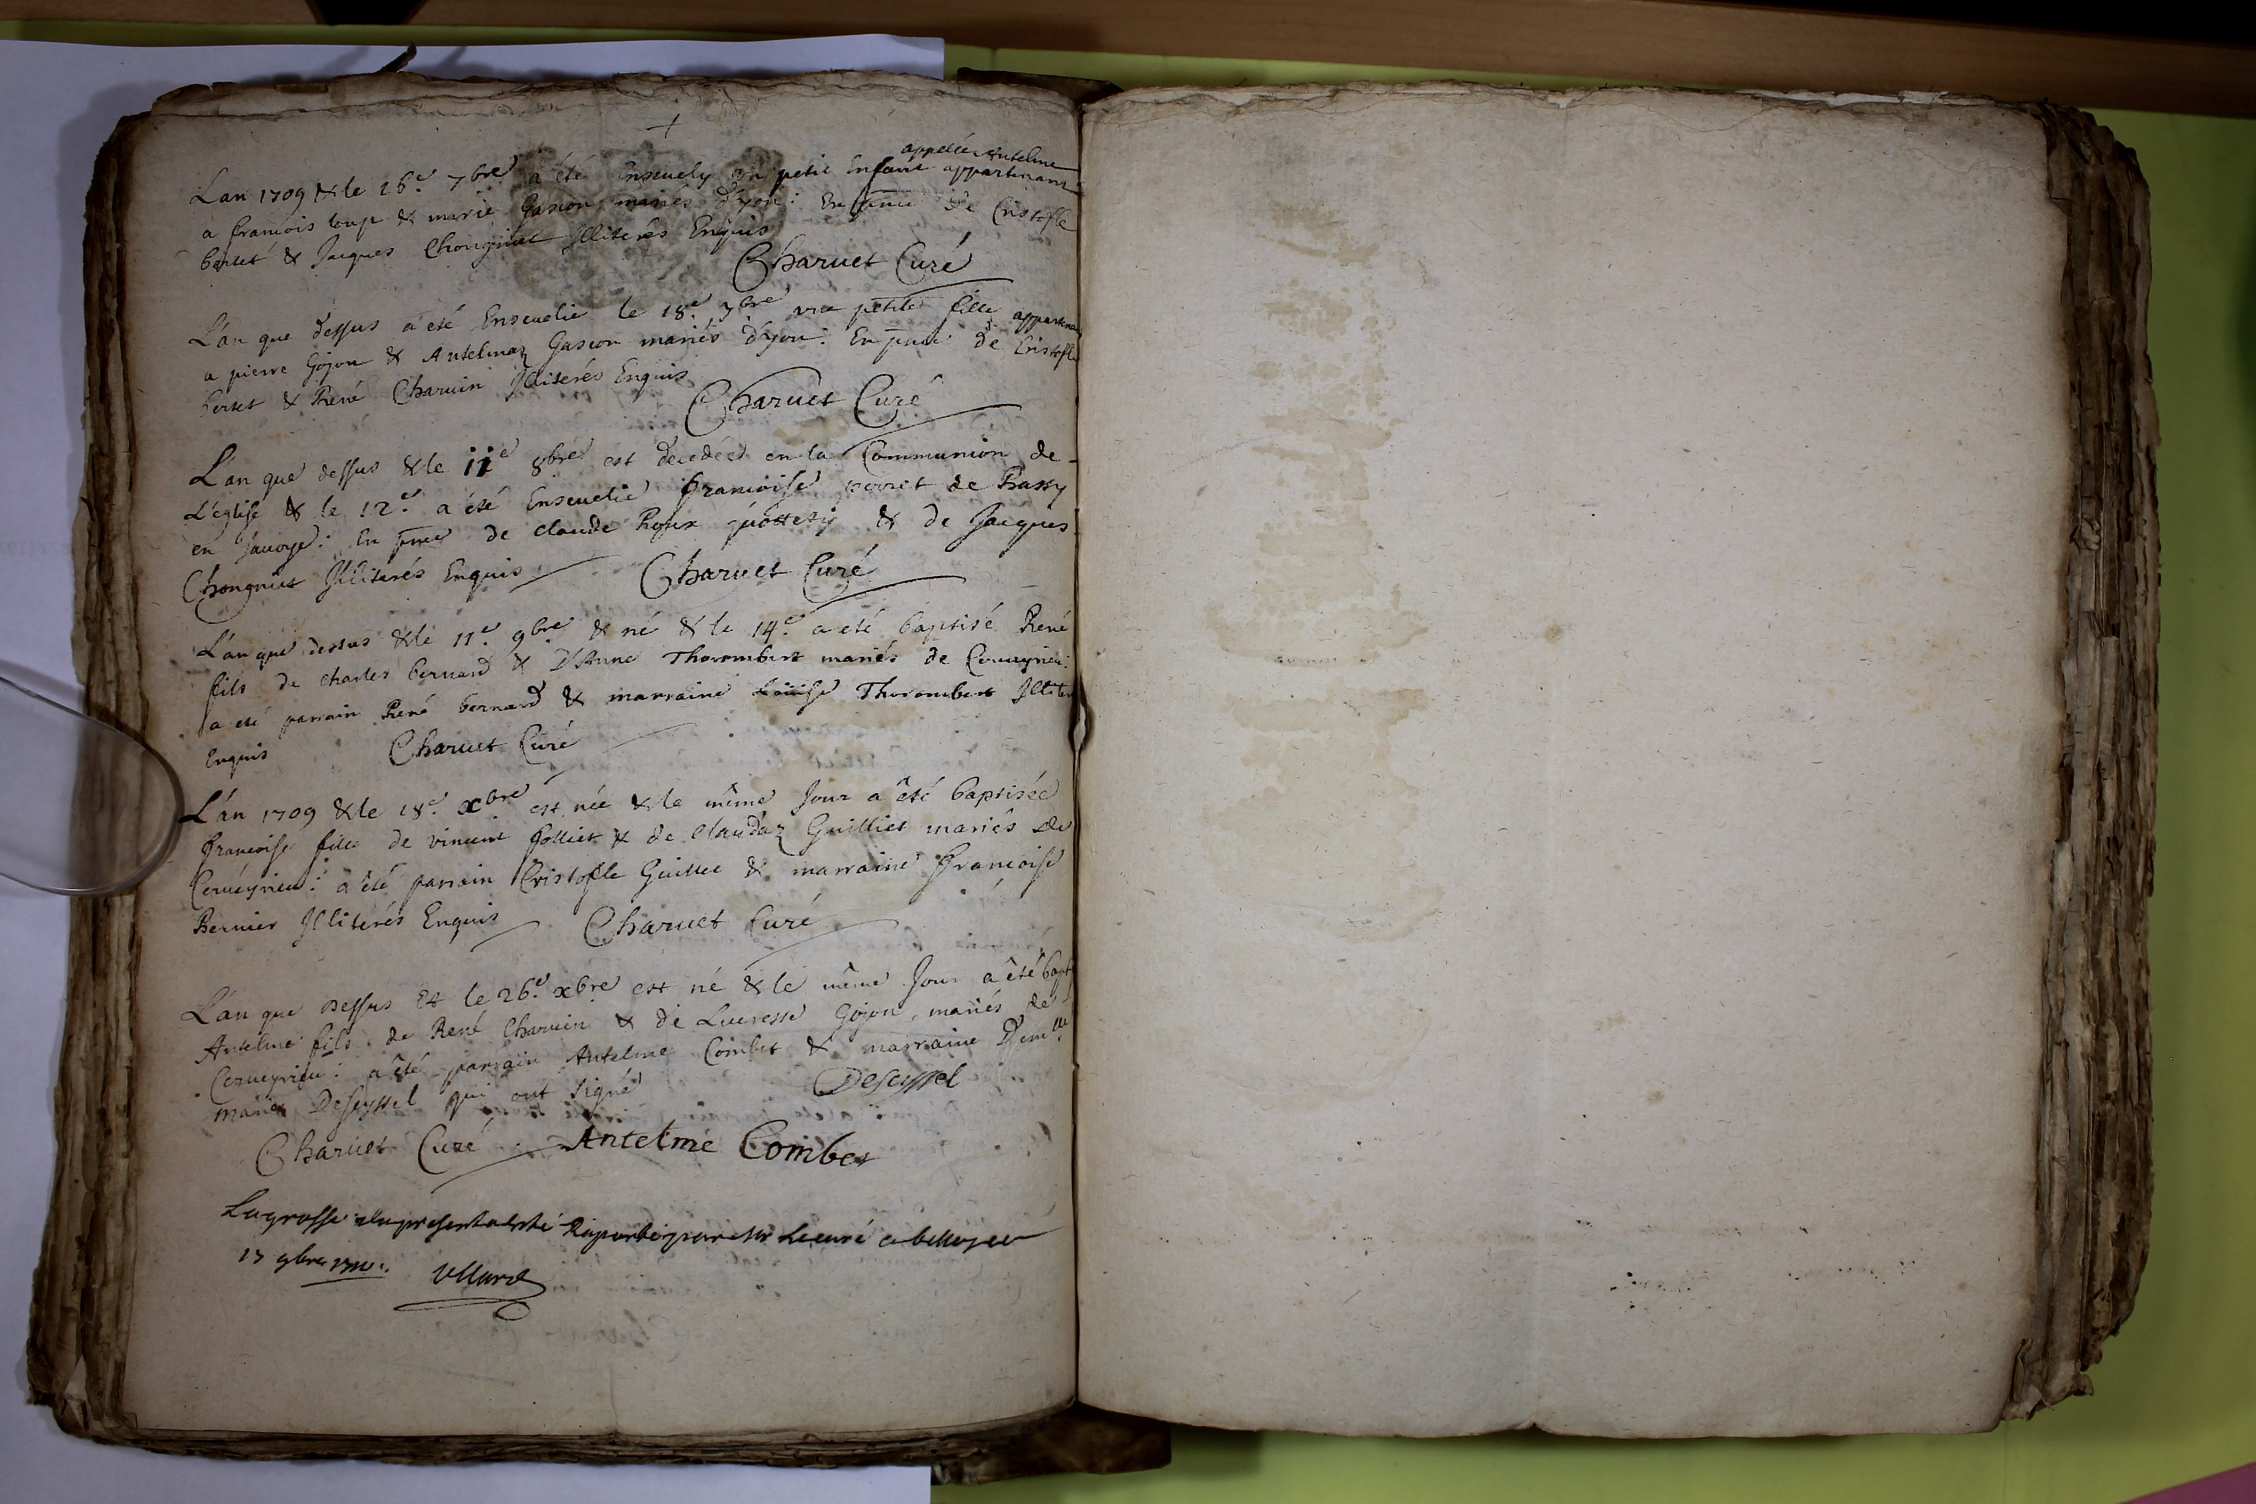 appellé Antelme
Lan 1709 & le 26e. 7bre a été Enseuely un petit Enfant appartenant
a francois loup & marie Gascon mariés d'yon: En pnce de Cristofle
bertet & Jacques Chongniat Illiterés Enquis
Charuet Curé
L'an que dessus a été Enseuelie le 18e. 7bre une petite fille appartenan
a pierre Gojon & Antelmaz Gascon mariés d'yon: En pnce de Cristofle
bertet & René Charuin Illiterés Enquis
Charuet Curé
L'an que dessus & le 11e 8bre est decedée en la Communion de
L'église & le 12e. a été Enseuelie francoise de Passy
en Sauoye: En pnce de Claude Roux & de Jacques
Chongniat Illiterés Enquis Charuet Curé
L'an que dessus & le 11e. 9bre & né & le 14e. a eté baptisé René
fils de charles bernard & D'Anne Thorombert mariés de Cerueyrieu:
a eté parrain René bernard & marraine Loüise Thorombert Illiter
Enquis Charuet Curé
L'an 1709 & le 18e. xbre est née & le même Jour a été baptisée
francoise fille de vincent folliet & de Claudaz Guilliet mariés de
Cerueyrieu: a été parrain Cristofle Guillet & marraine Francoise
Bernier Illiterés Enquis Charuet Curé
L'an que Dessus Et le 26e. xbre est né & le même Jour a été bapt
Antelme fils de René Charuin & de Lucresse Gojon, mariés de
Cerueyrieu: a été parrain Antelme Combet & marraine Demlle
mariez Deseyssel qui ont signé Deseyssel
Charuet Curé Antelme Combet
La grosse du present a esté Raportée par Mr Le curé a belley ce
17 9bre